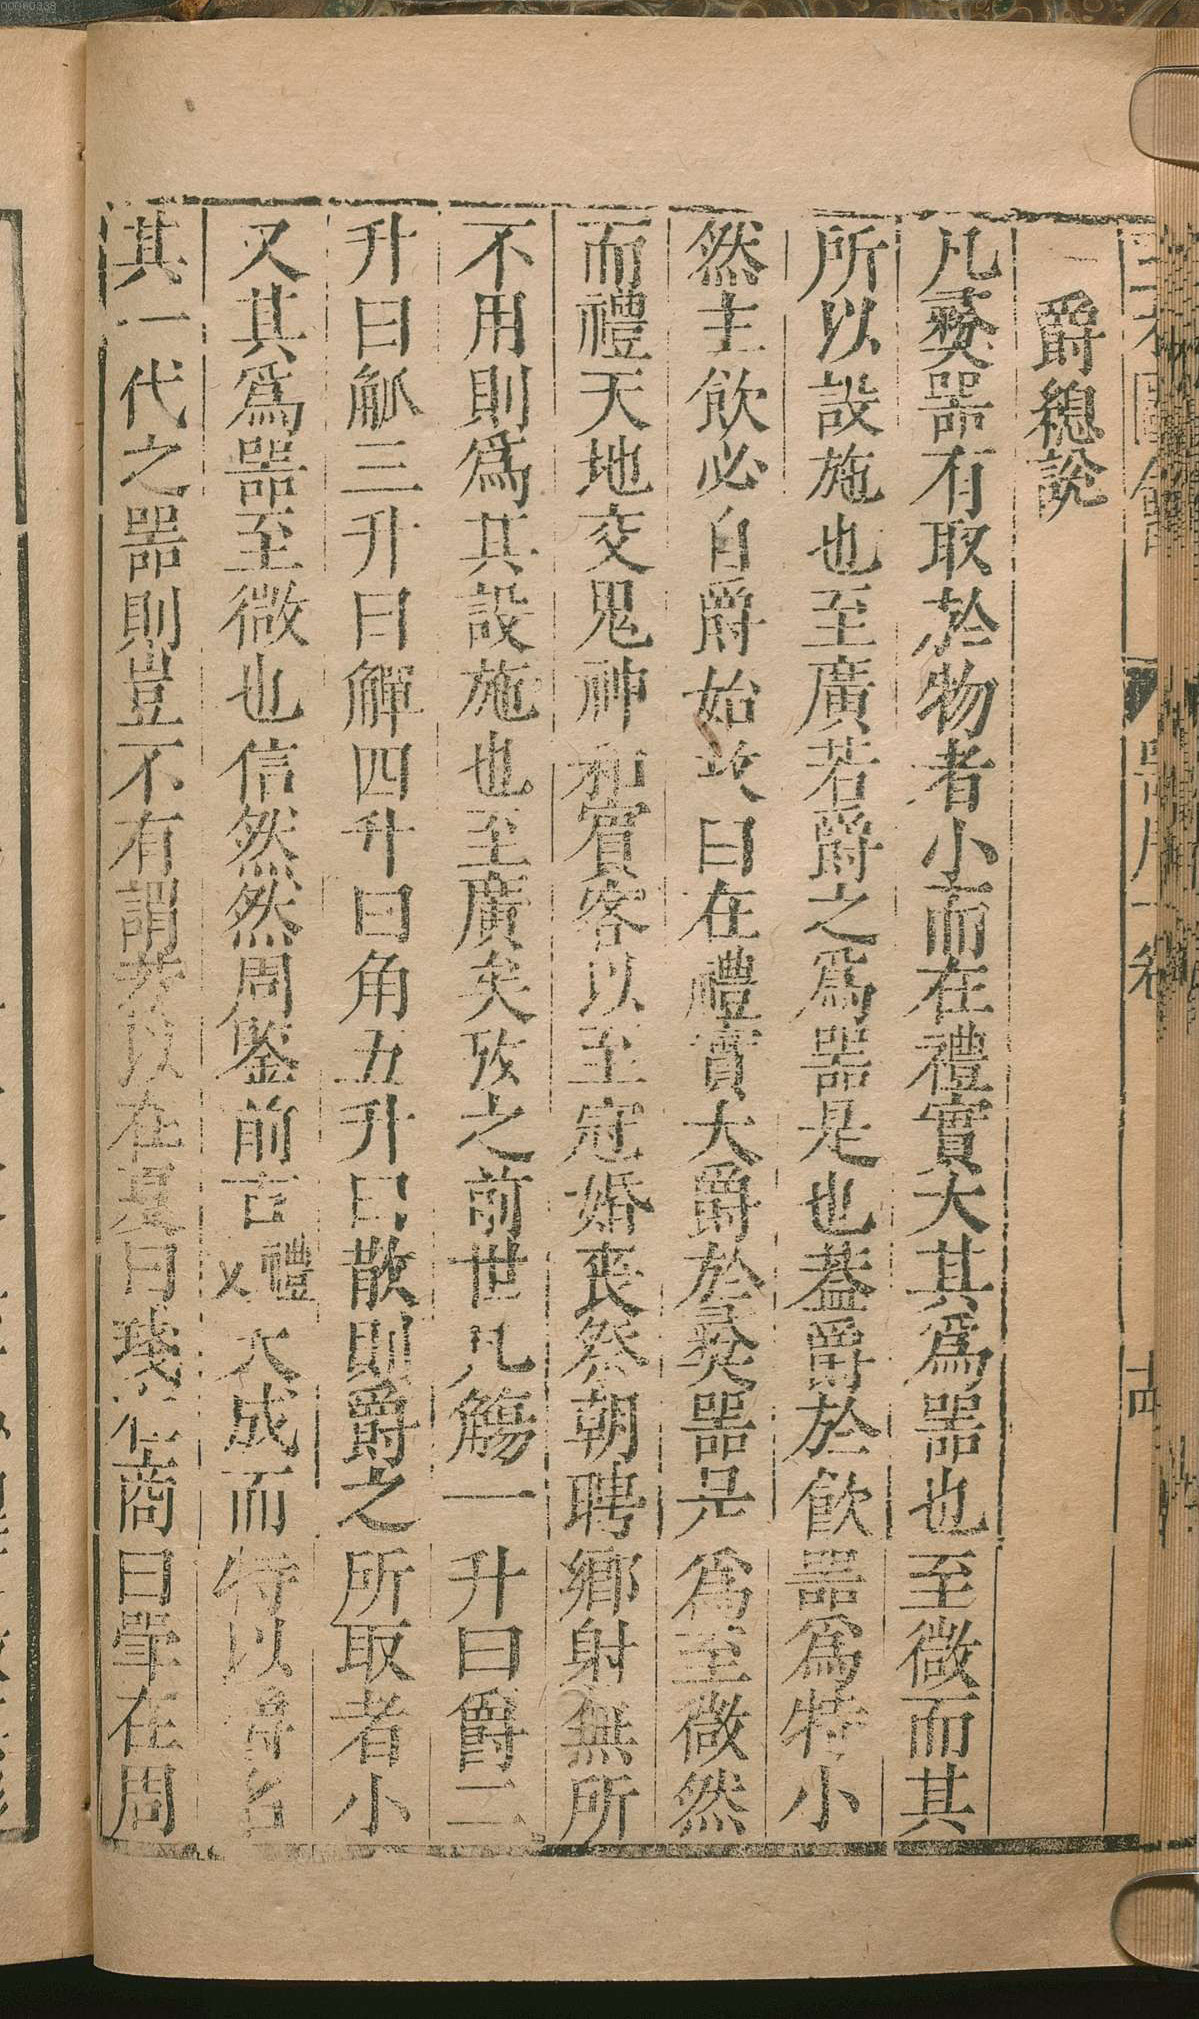 爵總說
凡彜器有取於物者小而在禮實大其爲器也至微而其
所以設施也至廣若爵之爲器是也葢爵於飲器爲特小
然主飲必自爵始故曰在禮實大爵於彜器是爲至微然
而禮天地交鬼神和賓客以至冠婚喪祭朝聘鄉射無所
不用則爲其設施也至廣矣攷之前世凡觴一升曰爵二
升曰觚三升曰觶四升曰角五升曰散則爵之所取者小
又其爲器至微也信然然周鑒前古禮文大成而特以爵名
其一代之器則豈不有謂故以在夏曰琖在商曰斝在周
十四
00060338